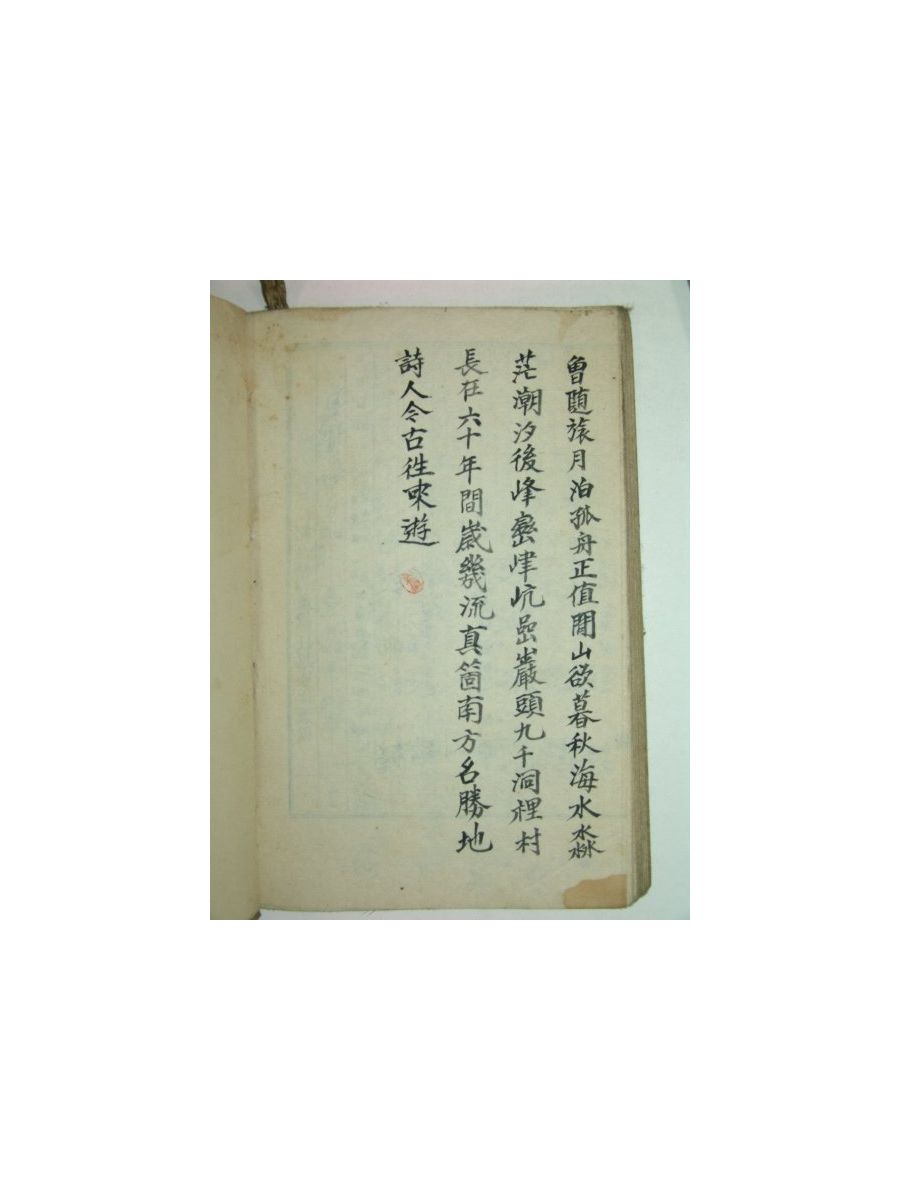 曾随旅月泊孤舟正值閒山欲暮秋海水淼
茫潮汐後峰巒嵂屼嵒巖頭九千洞裡村
長在六十年間歲幾流真箇南方名勝地
詩人令古徃來遊